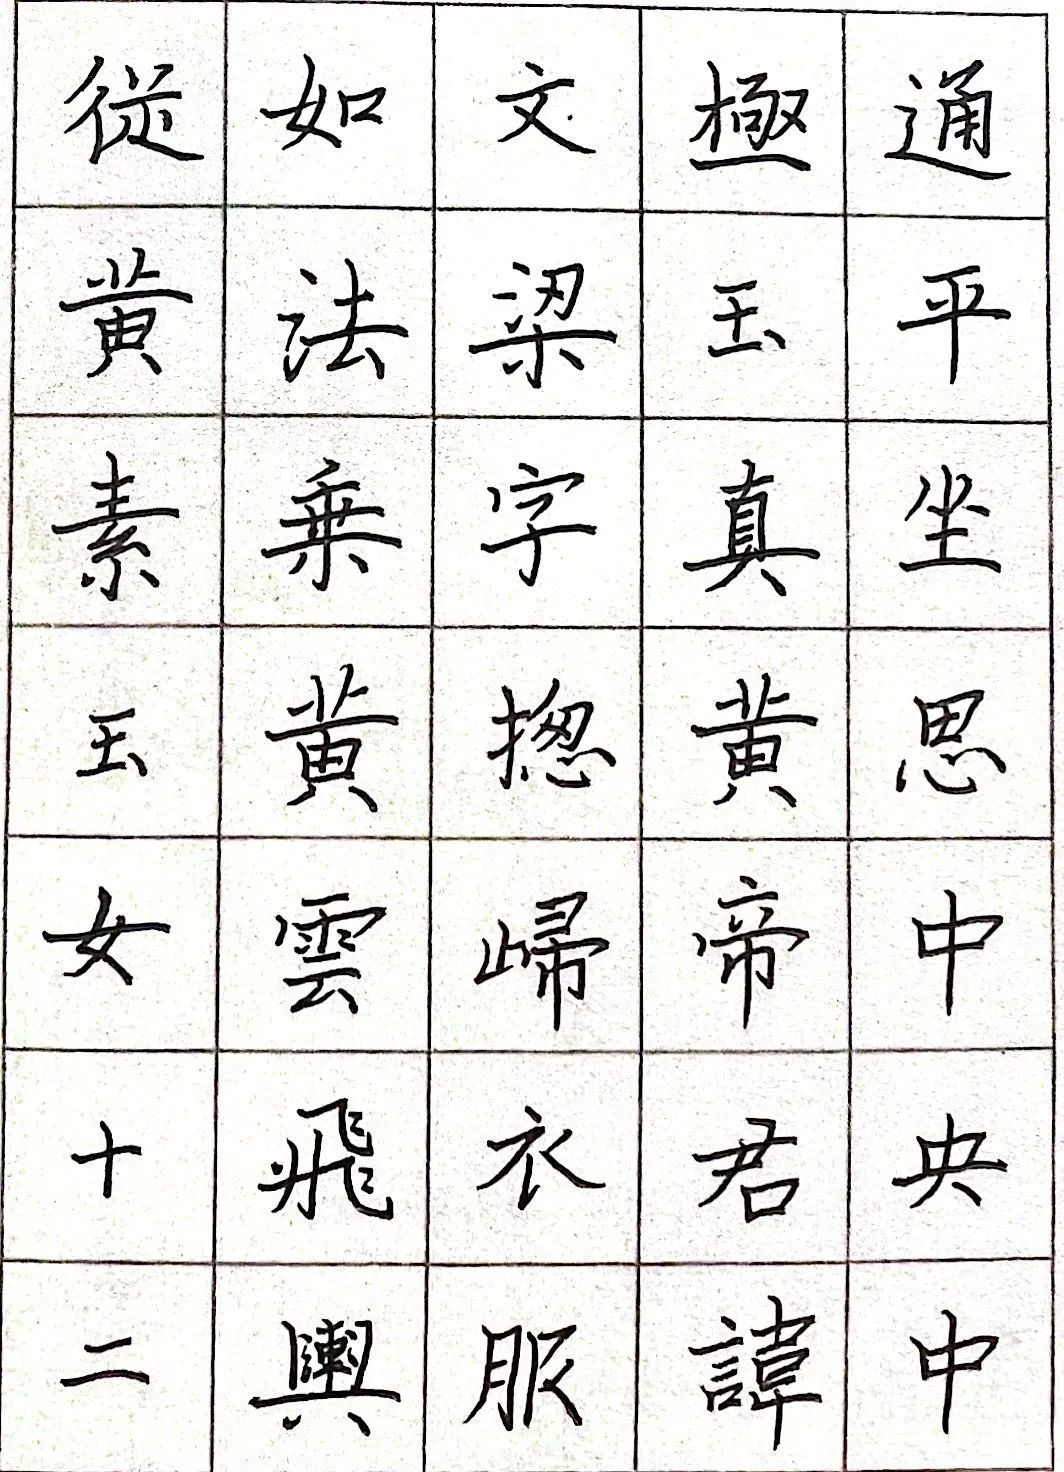 通平坐思中央中
極玉真黄帝君諱
文梁字揔歸衣服
如法乗黄雲飛輿
従黄素玉女十二